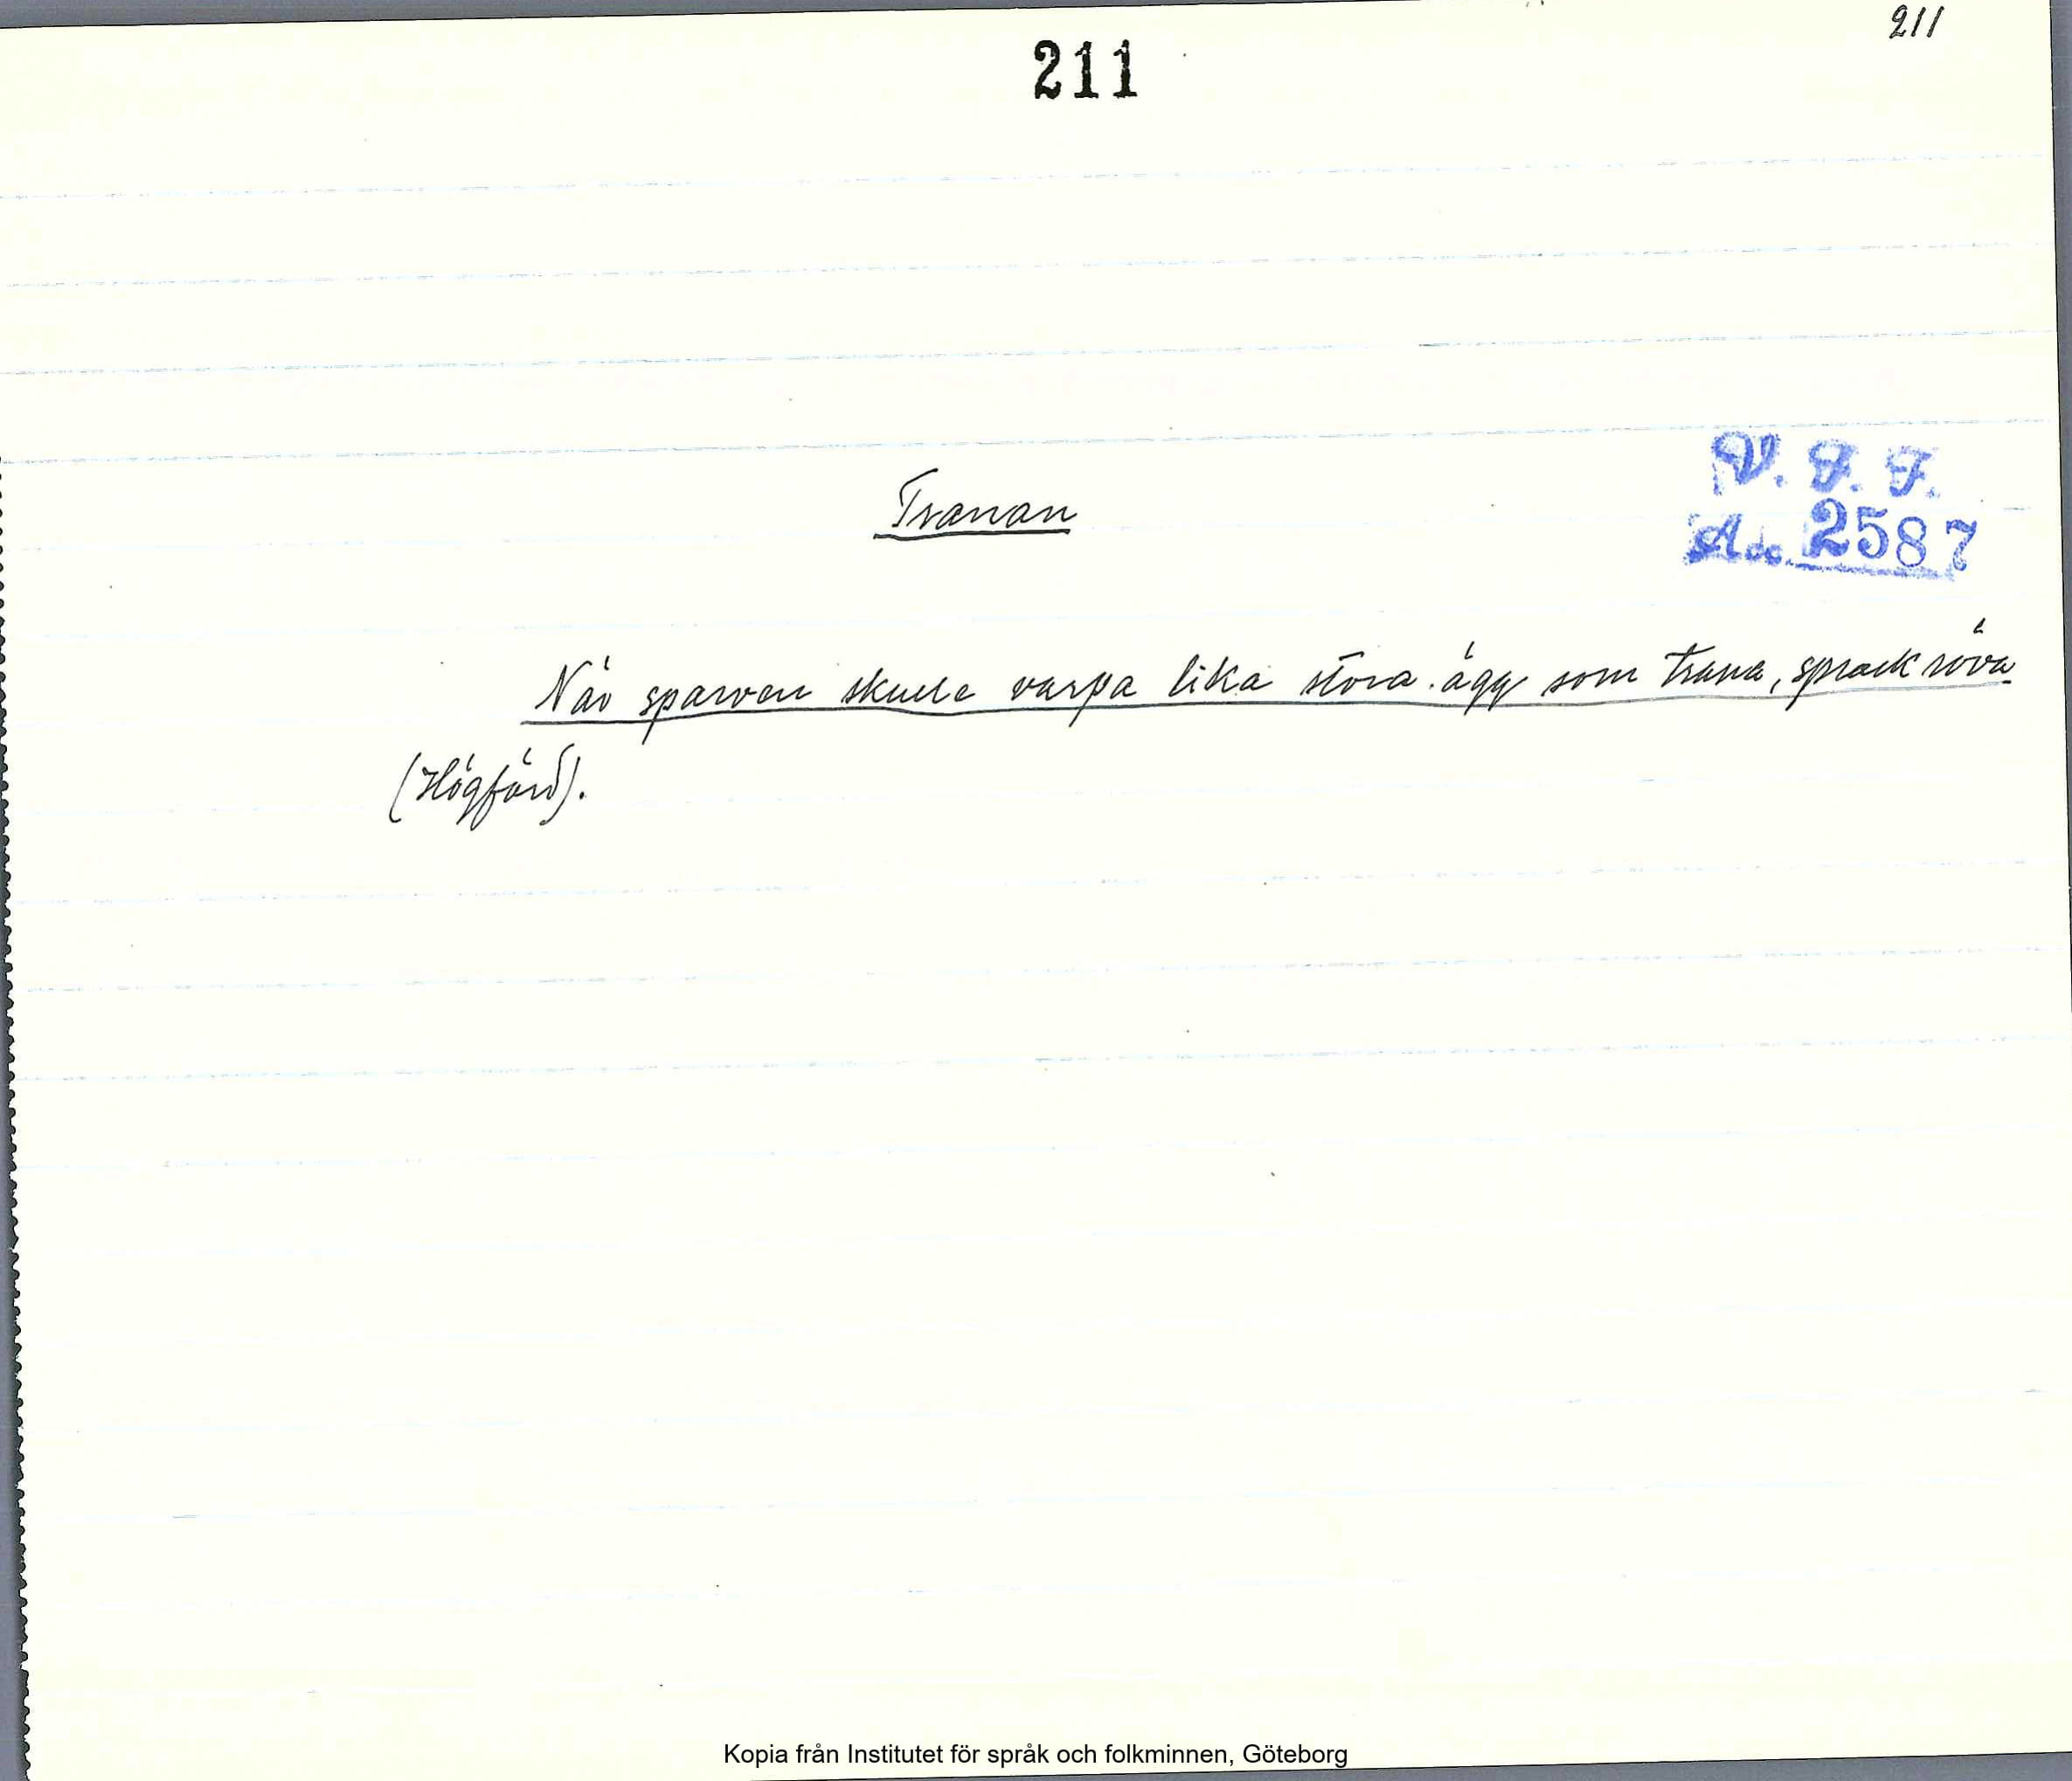 211
211
Tranan
V. F. F.
Acc. 2587
När sparven skulle värpa lika stora ägg som trana, sprack röva
(Högfärd).
Kopia från Institutet för språk och folkminnen, Göteborg